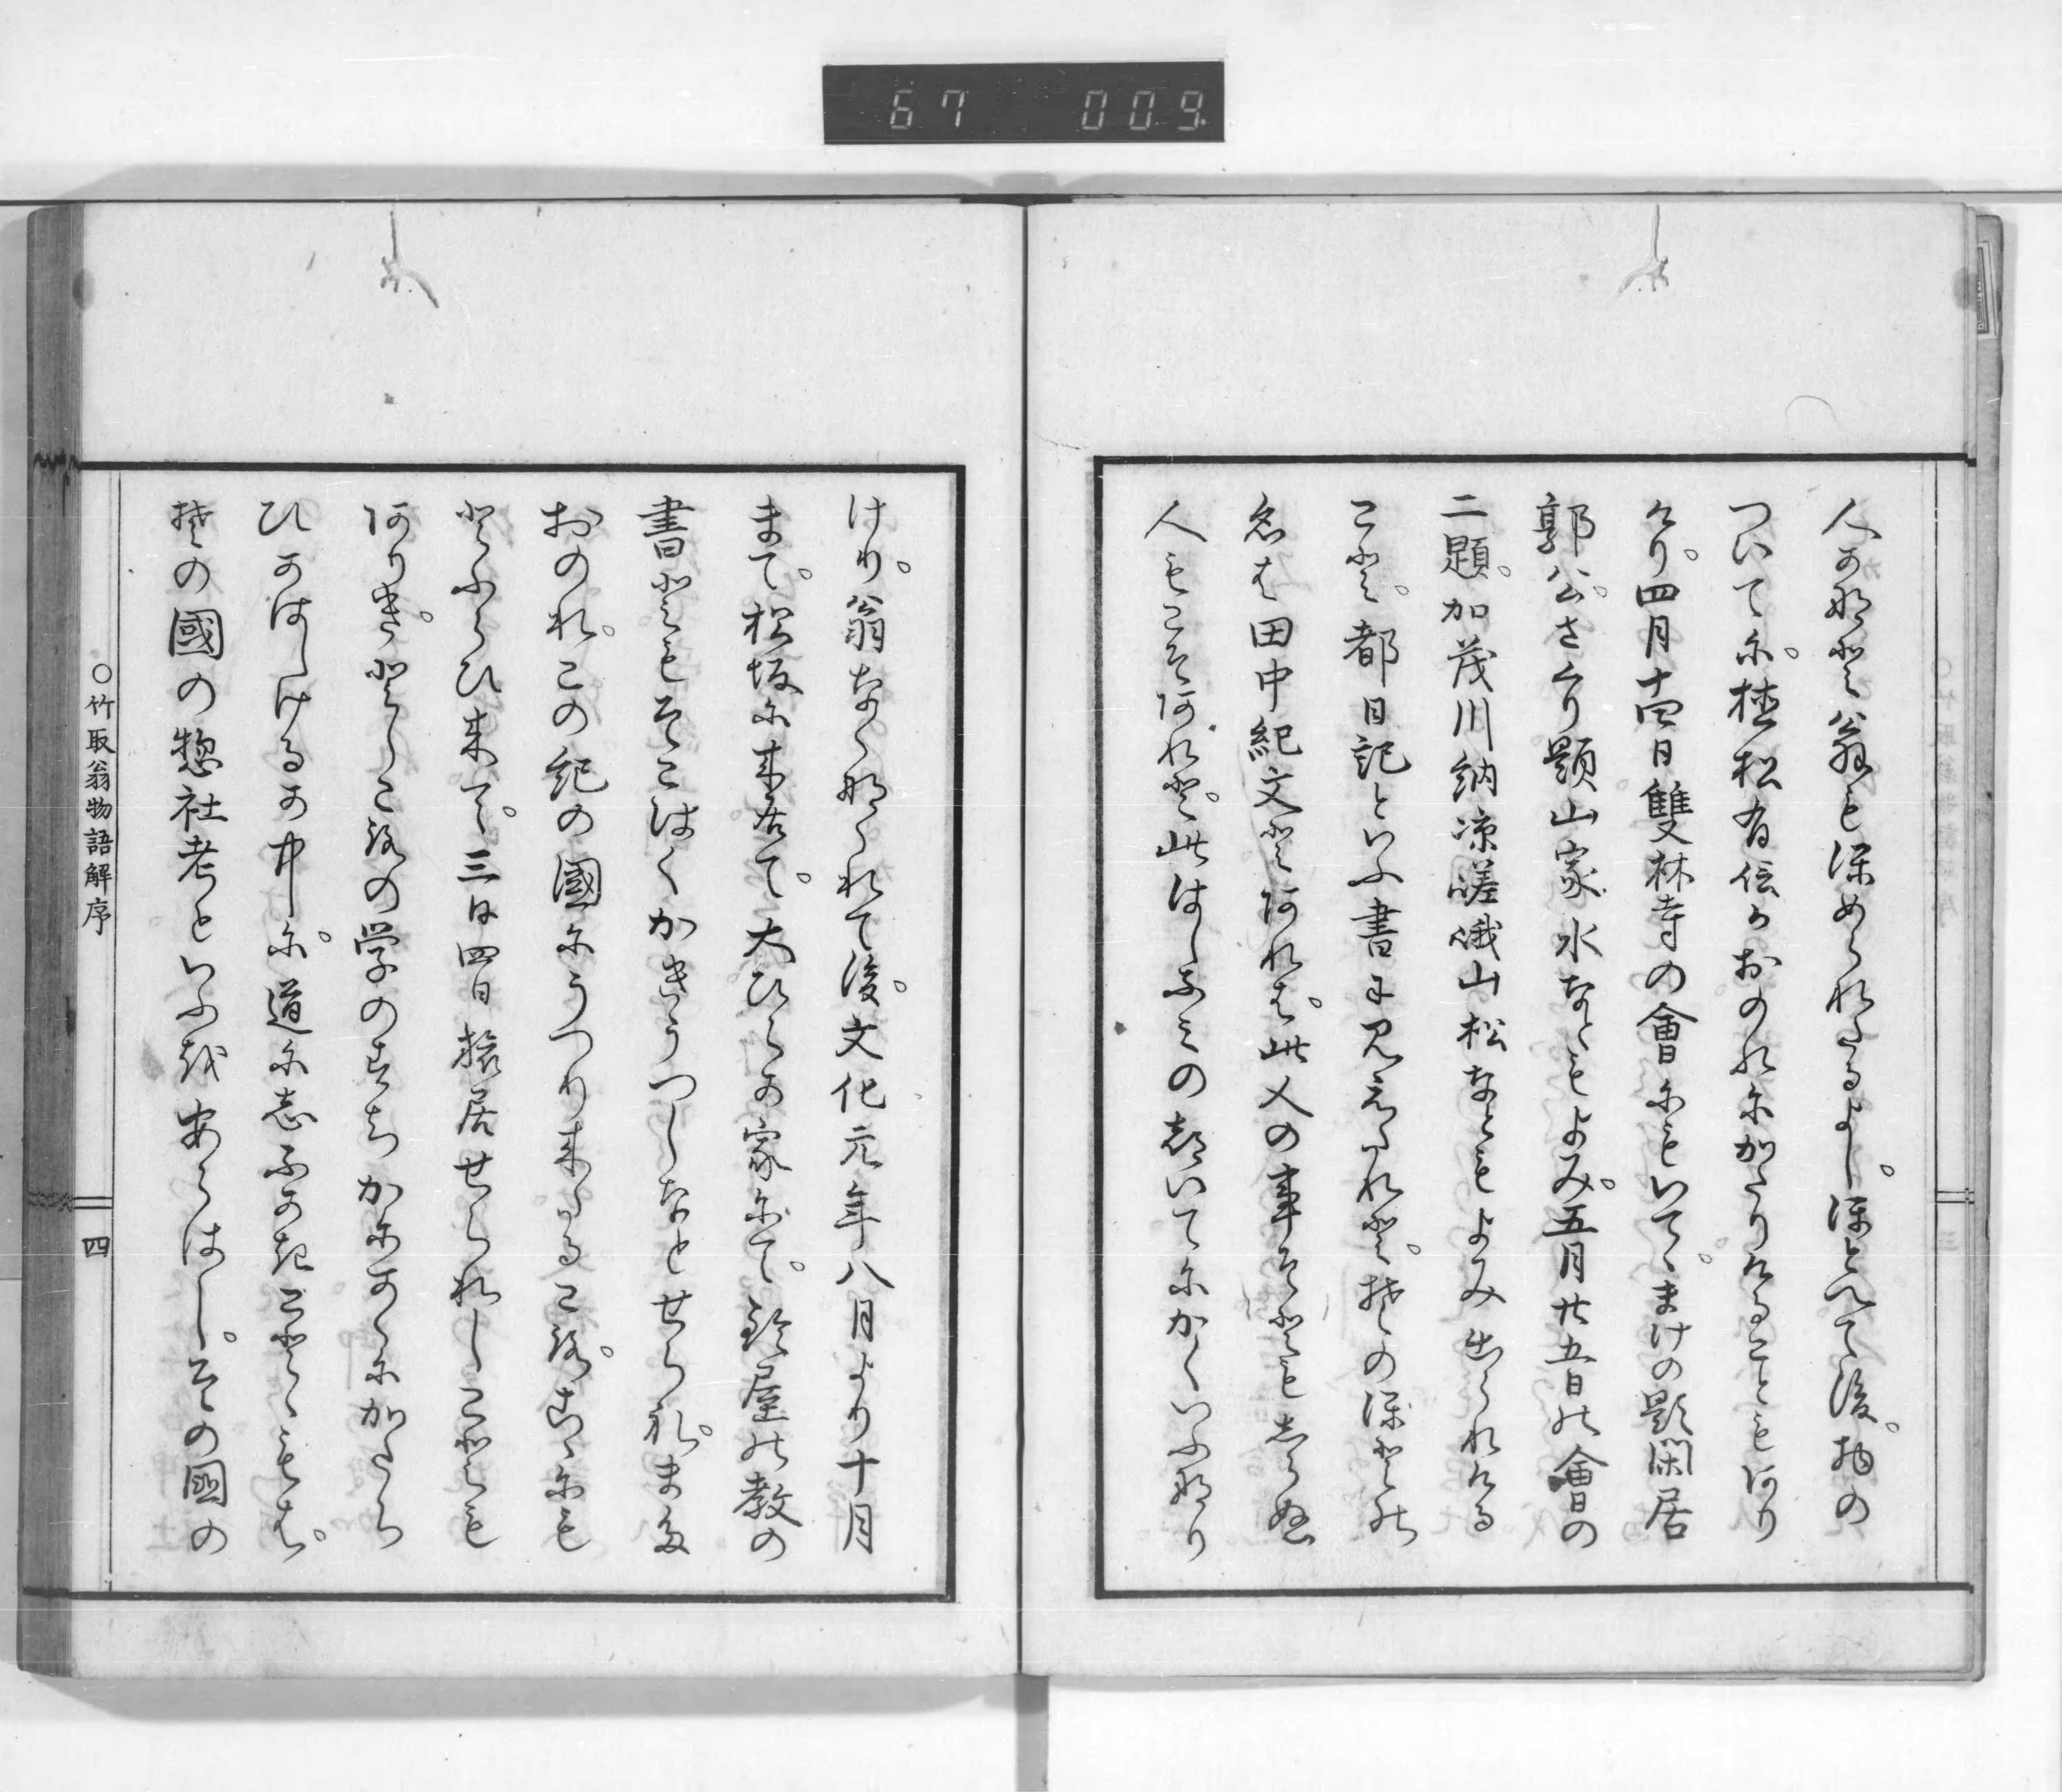 67 009
人かなと翁もほめられたるよし。ほとへて後。物の
ついてに。植松有信かおのれにかたりけることもあり
けり。四月十四日雙林寺の會にもいてゝ。まけの題閑居
郭公。さくり題山家水なともよみ。五月廿五日の會の
二題。加茂川納凉嵯峨山松なともよみ出られける
こと。都日記といふ書に見えたれと。そのほとの
名は田中紀文とあれは。此人の事そともしらぬ
人もこそあれと。此はしふみのついてにかくいふなり
けり。翁なくなられて後。文化元年八月より十月
まて。松坂に来居て。大ひらの家にて。鈴屋の教の
書ともそこはくかきうつしなとせられ。また
おのれ。この紀の國にうつり来たるころ。こゝにも
とふらひ来て。三日四日旅居せられしことも
ありき。としころの学のすちかにかくにかたら
ひかはしけるか中に。道に志ふかきことゝもは。
その國の惣社考といふをあらはし。その國の
○竹取翁物語解序
四